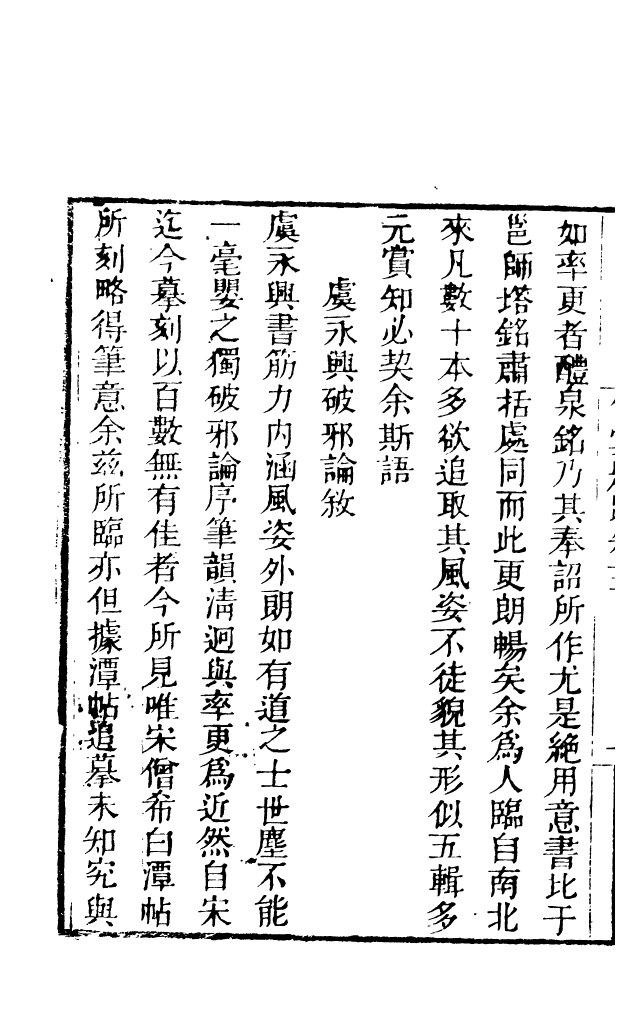 如率更者醴泉銘乃其奉詔所作尤是絶用意書比于
邕師塔銘肅括處同而此更朗暢矣余爲人臨自南北
來凡數十本多欲追取其風姿不徒貌其形似五輯多
元賞知必契余斯語
虞永興破邪論敘
虞永興書筋力内涵風姿外朗如有道之士世塵不能
一毫嬰之獨破邪論序筆韻淸迥與率更爲近然自宋
迄今摹刻以百數無有佳者今所見唯宋僧希白潭帖
所刻略得筆意余兹所臨亦但據潭帖追摹未知究與